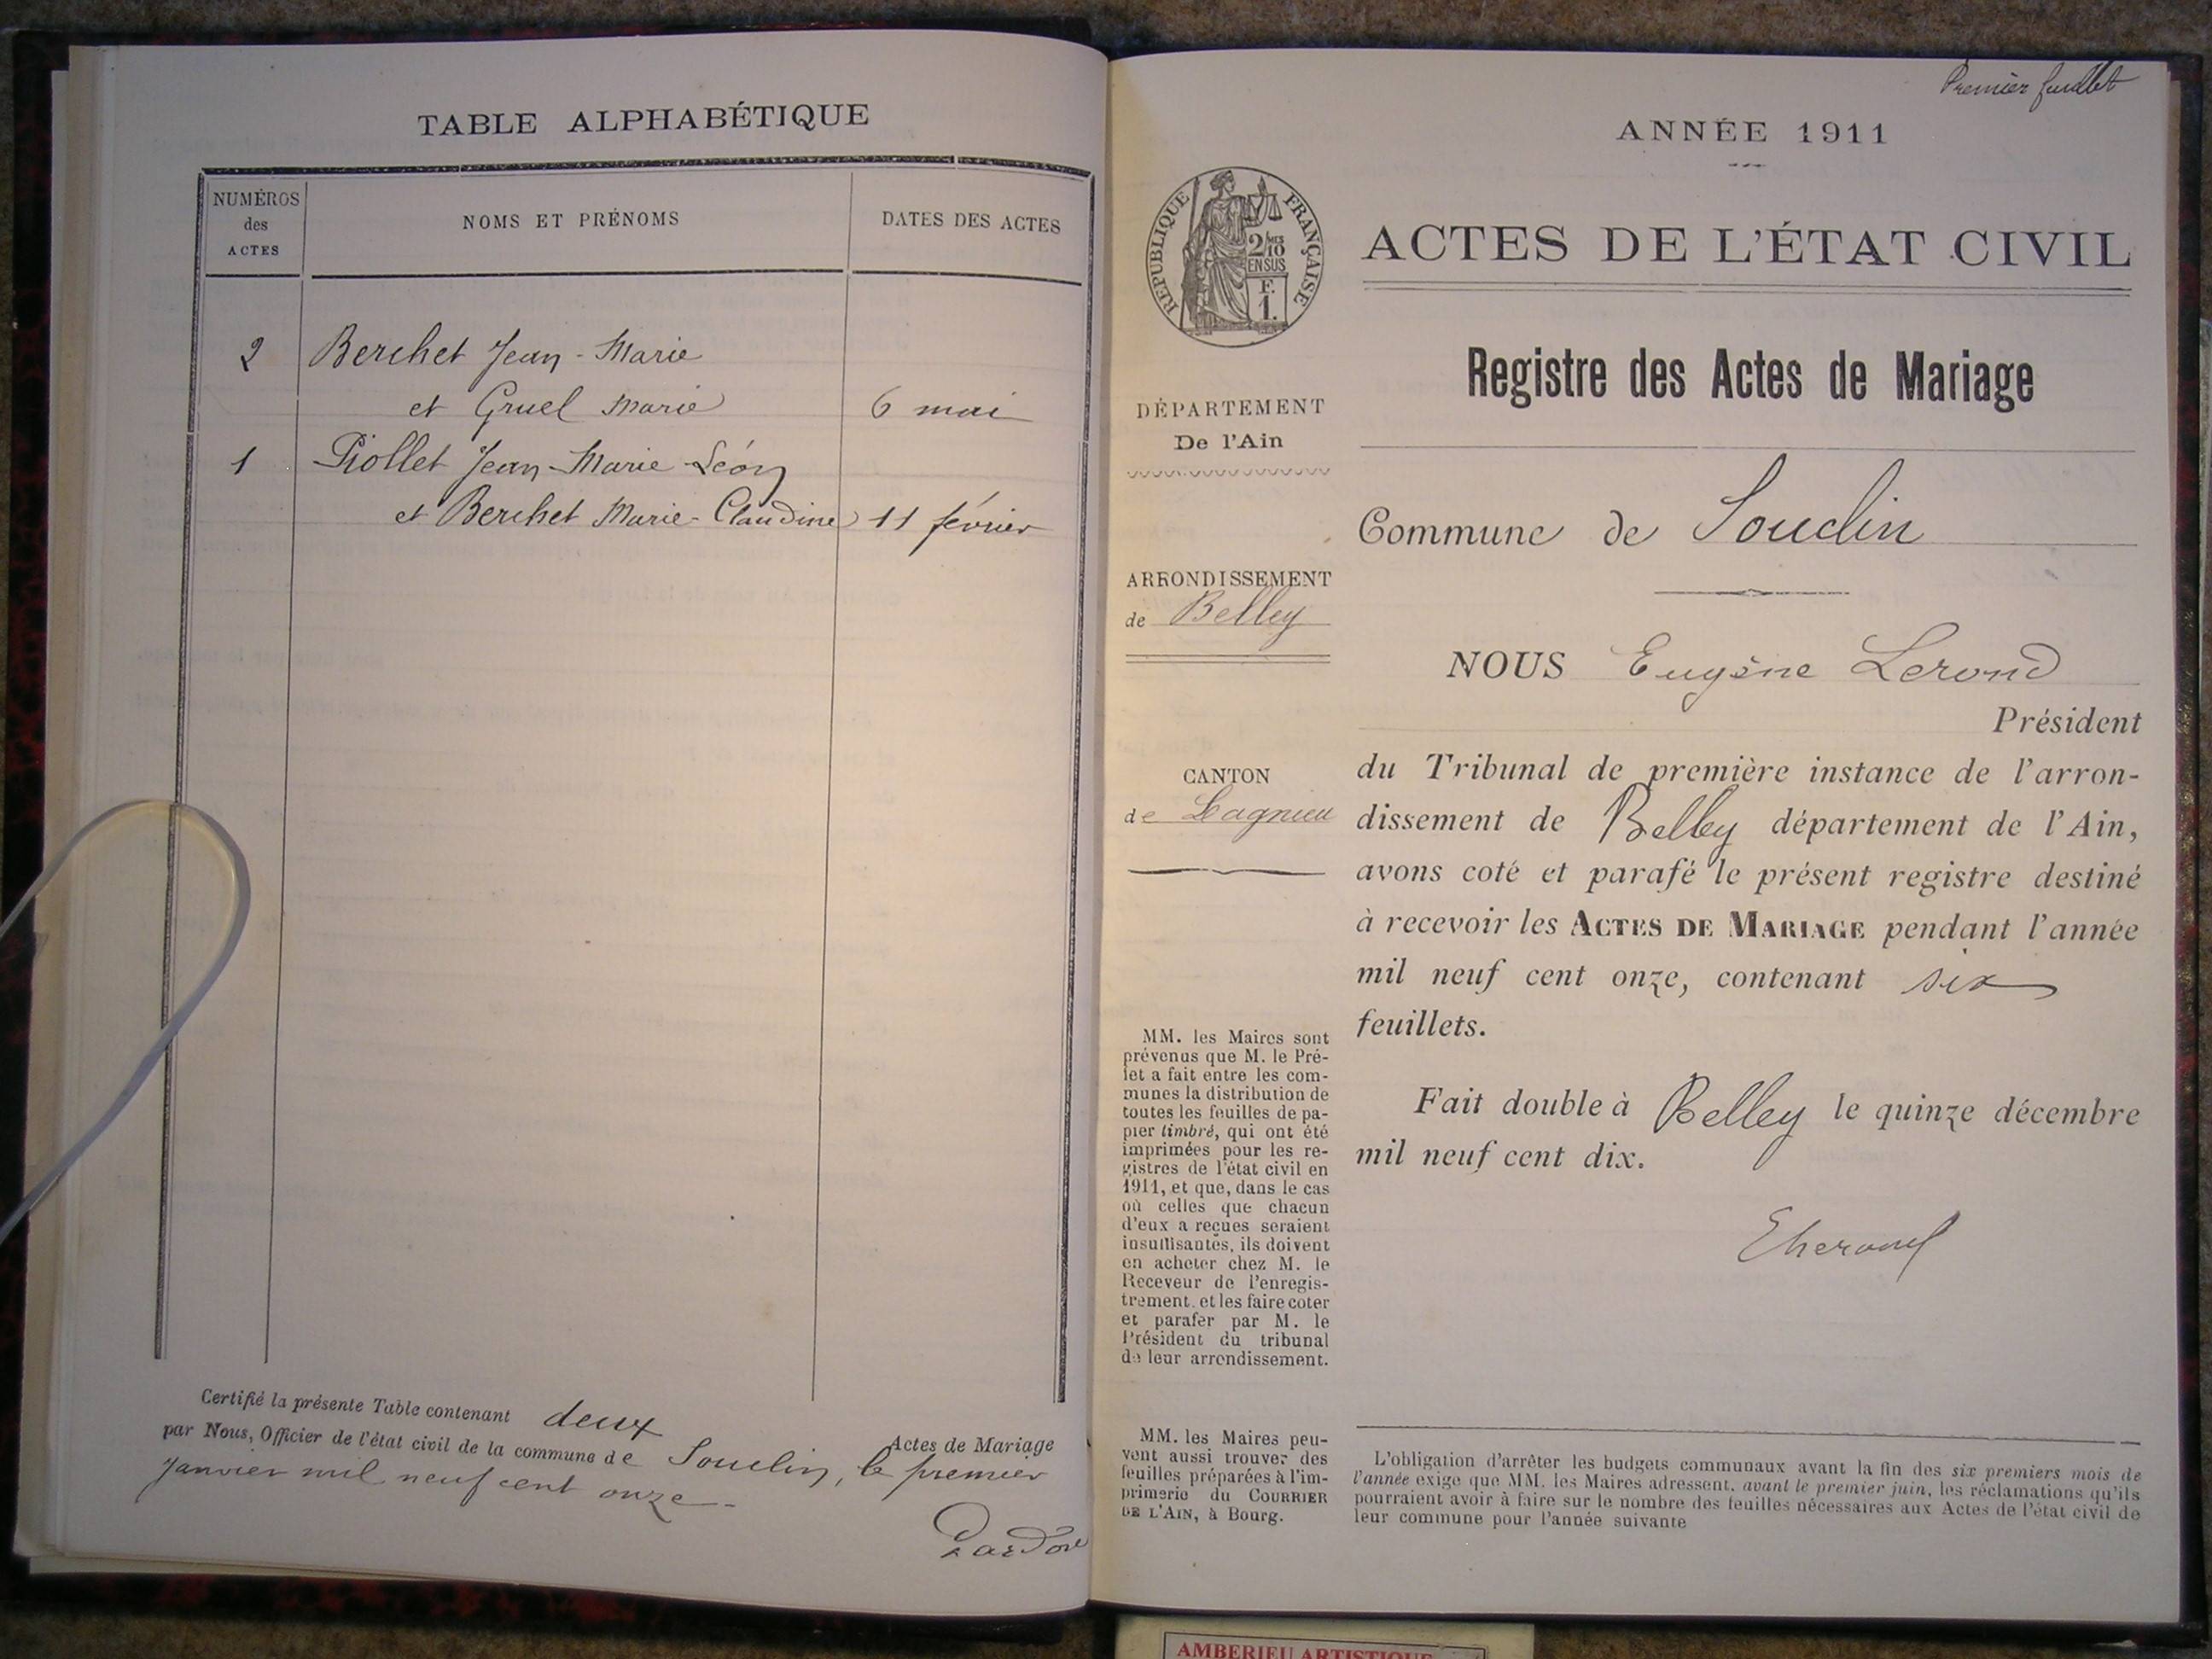 TABLE ALPHABÉTIQUE
NUMÉROS
des
ACTES
NOMS ET PRÉNOMS
DATES DES ACTES
2 Berchet Jean-Marie
et Gruel Marie 6 mai
1 Piollet Jean-Marie-Léon
et Berchet Marie-Claudine 11 février
Certifié la présente Table contenant deux Actes de Mariage
par Nous, Officier de l'état civil de la commune de Souclin, le premier
janvier mil neuf cent onze.
Premier feuillet
ANNÉE 1911
RÉPUBLIQUE FRANÇAISE
2/10
EN SUS
F.
1.
ACTES DE L'ÉTAT CIVIL
Registre des Actes de Mariage
DÉPARTEMENT
De l'Ain
Commune de Souclin
ARRONDISSEMENT
de Belley
CANTON
de Lagnieu
NOUS Eugène Lerond
Président
du Tribunal de première instance de l'arron-
dissement de Belley département de l'Ain,
avons coté et parafé le présent registre destiné
à recevoir les ACTES DE MARIAGE pendant l'année
mil neuf cent onze, contenant six
feuillets.
Fait double à Belley le quinze décembre
mil neuf cent dix.
MM. les Maires sont
prévenus que M. le Pré-
fet a fait entre les com-
munes la distribution de
toutes les feuilles de pa-
pier timbré, qui ont été
imprimées pour les re-
gistres de l'état civil en
1911, et que, dans le cas
où celles que chacun
d'eux a reçues seraient
insuffisantes, ils doivent
en acheter chez M. le
Receveur de l'enregis-
trement, et les faire coter
et parafer par M. le
Président du tribunal
de leur arrondissement.
MM. les Maires peu-
vent aussi trouver des
feuilles préparées à l'im-
primerie du COURRIER
DE L'AIN, à Bourg.
L'obligation d'arrêter les budgets communaux avant la fin des six premiers mois de
l'année exige que MM. les Maires adressent, avant le premier juin, les réclamations qu'ils
pourraient avoir à faire sur le nombre des feuilles nécessaires aux Actes de l'état civil de
leur commune pour l'année suivante
AMBERIEU ARTISTIQUE